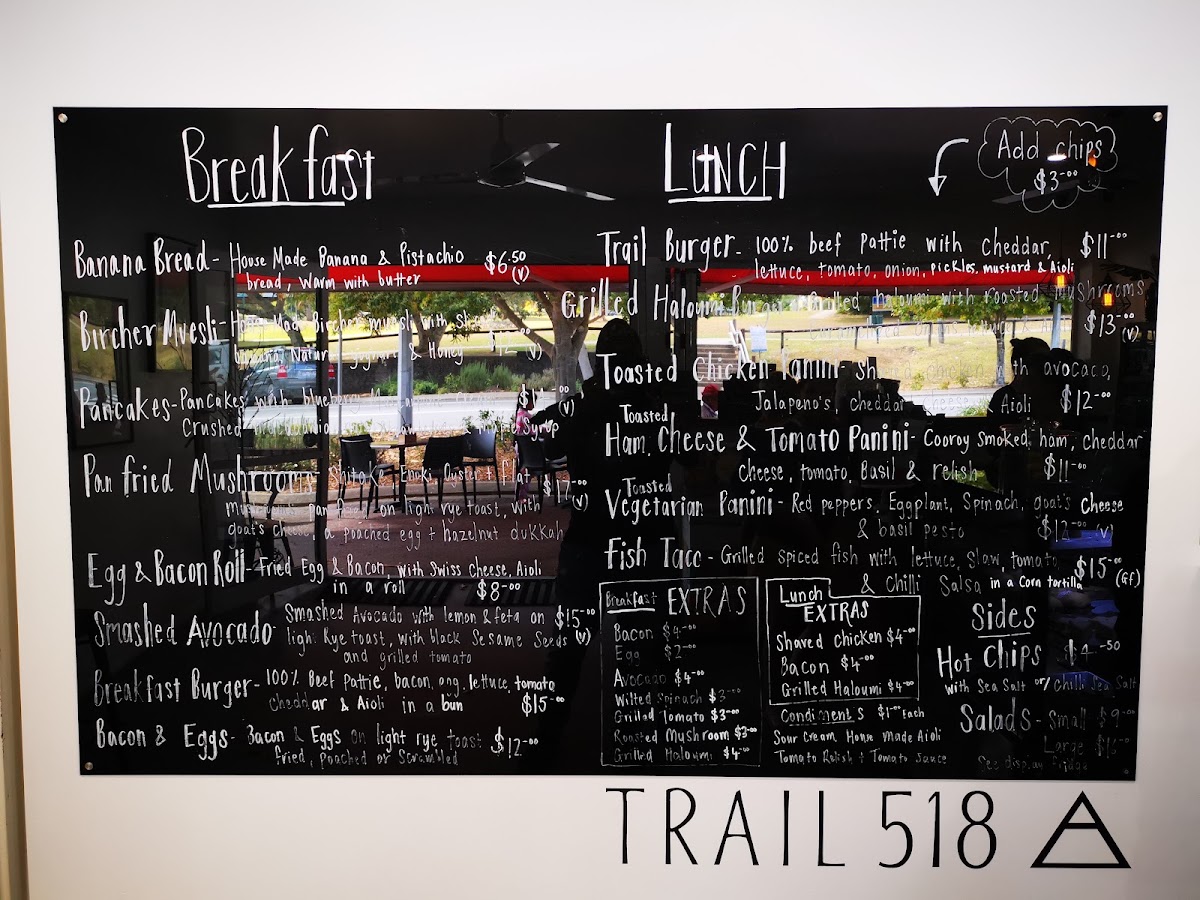 Breakfast
Banana Bread - House Made Banana & Pistachio $6.50
bread, warm with butter (V)
Bircher Muesli - House Made Bircher muesli with
banana, Natural & Honey (V)
Pancakes - Pancakes with blueberry
Crushed Syrup (V)
Pan fried Mushrooms - Enoki, Oyster + flat
mushrooms pan fried on light rye toast, with (V)
goat's cheese, a poached egg + hazelnut dukkah
Egg & Bacon Roll - Fried Egg & Bacon, with Swiss cheese, Aioli
in a roll $8.00
Smashed Avocado - Smashed Avocado with lemon & feta on $15.00
light Rye toast, with black Sesame Seeds (V)
and grilled tomato
Breakfast Burger - 100% Beef Pattie, bacon, egg, lettuce, tomato
cheddar & Aioli in a bun $15.00
Bacon & Eggs - Bacon & Eggs on light rye toast $12.00
fried, poached or Scrambled
LUNCH
Add chips
$3.00
Trail Burger - 100% beef pattie with cheddar, $11.00
lettuce, tomato, onion, pickles, mustard & Aioli
Grilled Haloumi Burger - Grilled haloumi with roasted mushrooms
$13.00 (V)
Toasted Chicken Panini - shaved chicken with avocado,
Jalapeno's, cheddar cheese Aioli $12.00
Toasted
Ham, Cheese & Tomato Panini - Cooroy smoked ham, cheddar
cheese, tomato, Basil & relish $11.00
Toasted
Vegetarian Panini - Red peppers, Eggplant, Spinach, goat's cheese
& basil pesto $12.00 (V)
Fish Taco - Grilled spiced fish with lettuce, Slaw, tomato $15.00
& Chilli Salsa in a Corn tortilla (Gf)
Breakfast EXTRAS
Bacon $4.00
Egg $2.00
Avocado $4.00
Wilted Spinach $3.00
Grilled Tomato $3.00
Roasted Mushroom $3.00
Grilled Haloumi $4.00
Lunch
EXTRAS
Shaved Chicken $4.00
Bacon $4.00
Grilled Haloumi $4.00
Condiments $1.00 Each
Sour Cream, House made Aioli
Tomato Relish + Tomato Sauce
Sides
Hot Chips $4.50
with Sea Salt or/ Chilli Sea Salt
Salads - Small $9.00
Large
See display fridge
TRAIL 518